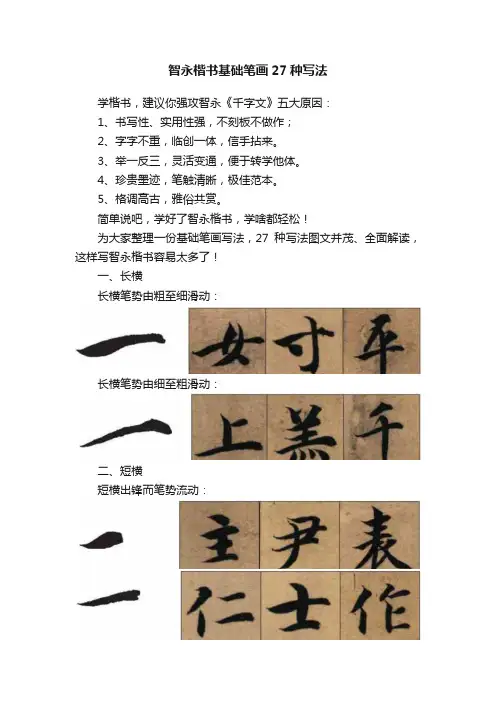 智永楷书基础笔画27种写法
学楷书，建议你强攻智永《千字文》五大原因：
1、书写性、实用性强，不刻板不做作；
2、字字不重，临创一体，信手拈来。
3、举一反三，灵活变通，便于转学他体。
4、珍贵墨迹，笔触清晰，极佳范本。
5、格调高古，雅俗共赏。
简单说吧，学好了智永楷书，学啥都轻松！
为大家整理一份基础笔画写法，27种写法图文并茂、全面解读，
这样写智永楷书容易太多了！
一、长横
长横笔势由粗至细滑动：
女寸平
长横笔势由细至粗滑动：
上羔千
二、短横
短横出锋而笔势流动：
主尹表
仁士作